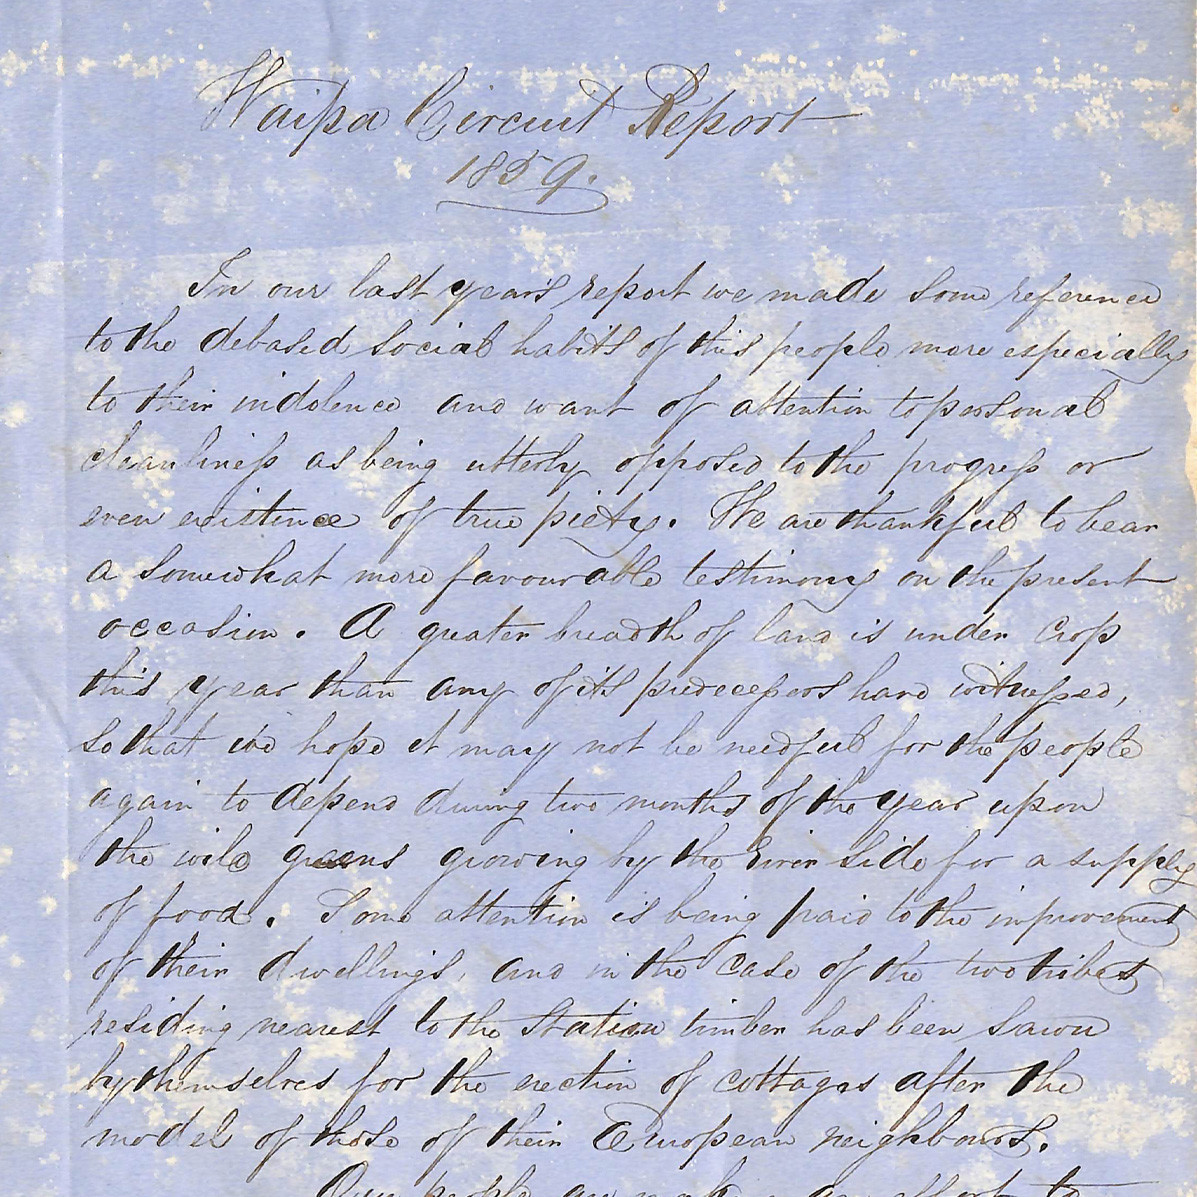 Waipa Circuit Report
1859.
In our last year's report we made some reference
to the debased social habits of this people more especially
to their indolence and want of attention to personal
cleanliness as being utterly opposed to the progress or
even existence of true piety. We are thankful to bear
a somewhat more favourable testimony on the present
occasion. A greater breadth of land is under crop
this year than any of its predecessors have witnessed,
so that we hope it may not be needful for the people
again to depend during two months of the year upon
the wild greens growing by the river side for a supply
of food. Some attention is being paid to the improvement
of their dwellings, and in the case of the two tribes
residing nearest to the Station timber has been sawn
by themselves for the erection of cottages after the
model of those of their European neighbours.
Our people are making an effort to